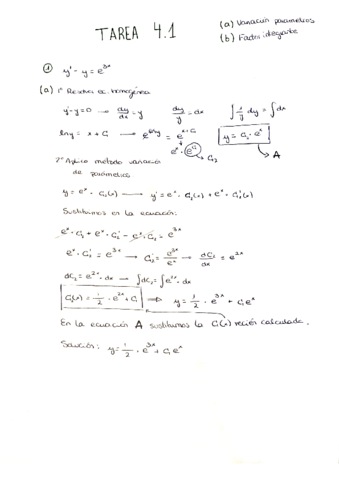 TAREA 4.1
(a) Variación parámetros
(b) Factor integrante
① y' - y = e^{3x}
(a) 1º Resolver ec. homogénea
y' - y = 0 → dy/dx = y    dy/y = dx    ∫ 1/y dy = ∫ dx
ln y = x + C → e^{ln y} = e^{x+C}    y = C₂ · e^x
e^x · e^C → C₂    A
2º Aplico método variación
de parámetros
y = e^x · C₂(x) → y' = e^x · C₂(x) + e^x · C₂'(x)
Sustituimos en la ecuación:
e^x · C₂ + e^x · C₂' - e^x · C₂ = e^{3x}
e^x · C₂' = e^{3x} → C₂' = e^{3x}/e^x → dC₂/dx = e^{2x}
dC₂ = e^{2x} · dx → ∫ dC₂ = ∫ e^{2x} · dx
C₂(x) = 1/2 · e^{2x} + C₁ ⇒ y = 1/2 · e^{3x} + C₁ e^x
En la ecuación A sustituimos la C₂(x) recién calculada.
Solución: y = 1/2 · e^{3x} + C₁ e^x